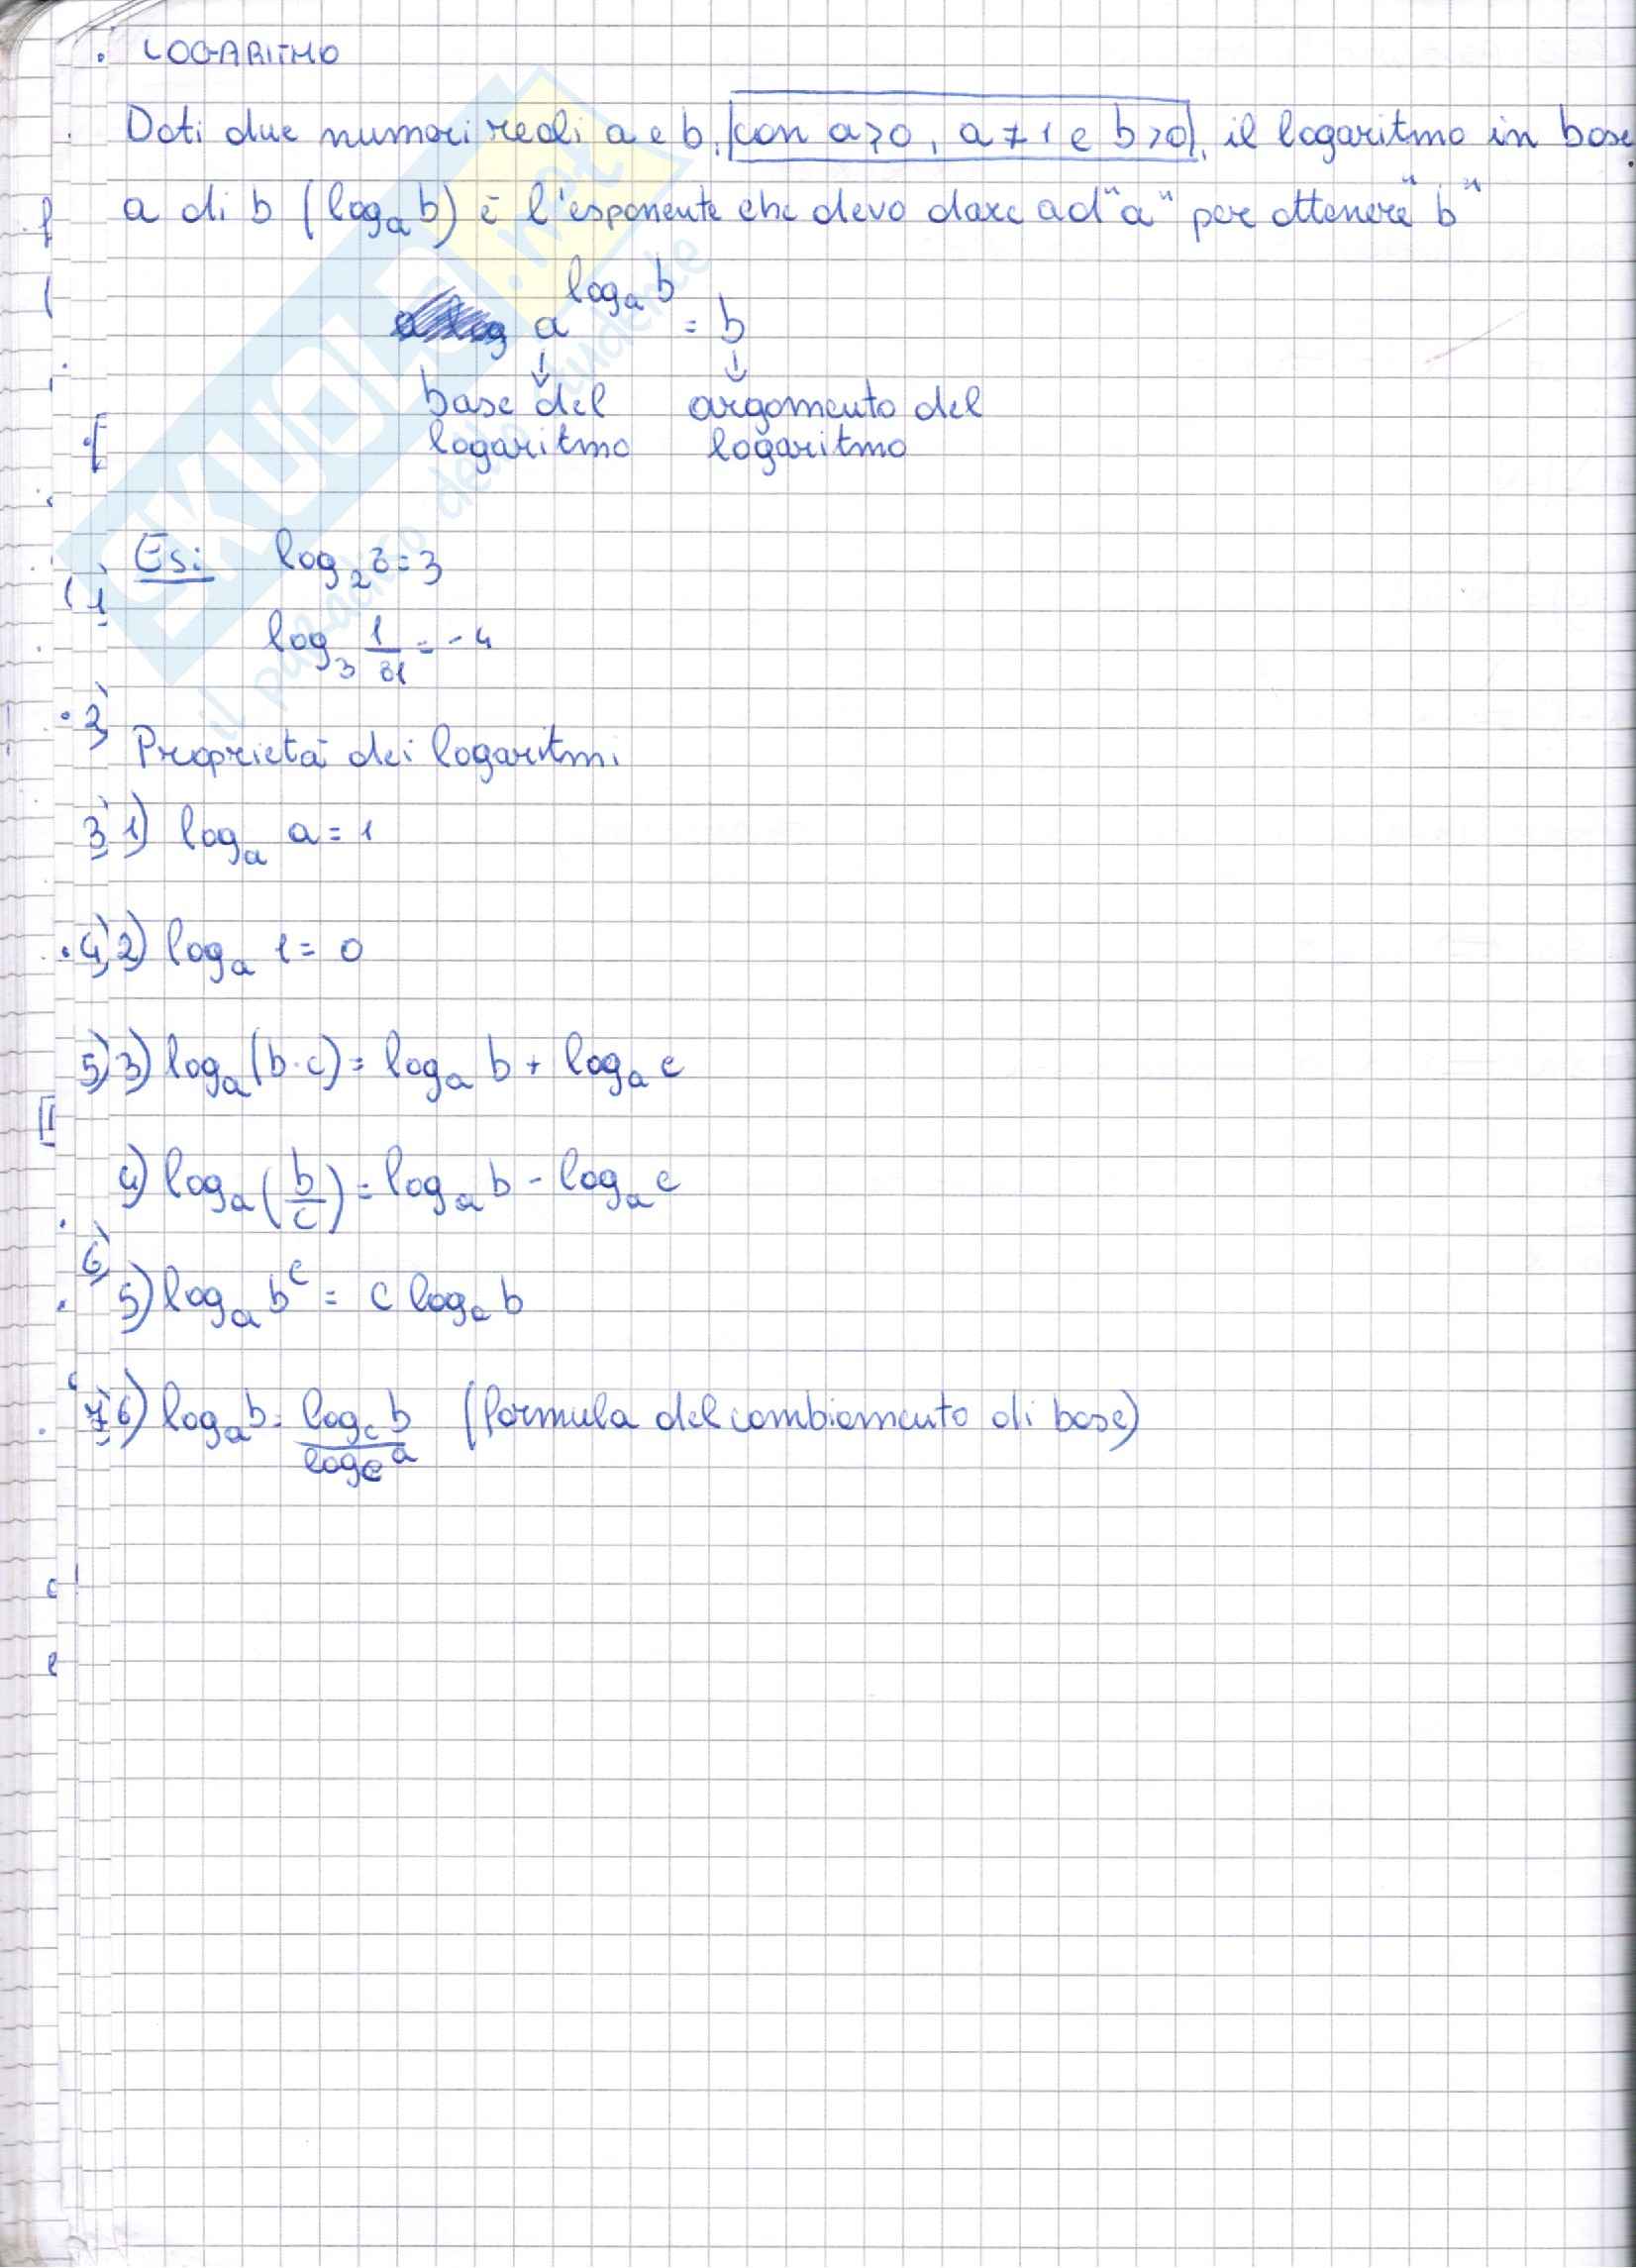 • LOGARITMO
Dati due numeri reali a e b, con a>0, a≠1 e b>0, il logaritmo in base
a di b (logₐ b) è l'esponente che devo dare ad "a" per ottenere "b"
a^(logₐ b) = b
↓ ↓
base del argomento del
logaritmo logaritmo
Es: log₂ 8 = 3
log₃ 1/81 = -4
Proprietà dei logaritmi
1) logₐ a = 1
2) logₐ 1 = 0
3) logₐ (b·c) = logₐ b + logₐ c
4) logₐ (b/c) = logₐ b - logₐ c
5) logₐ b^c = c logₐ b
6) logₐ b = log_c b / log_c a (formula del cambiamento di base)
1)
2)
3)
4)
5)
6)
7)
SKUOLA.net
il paradiso dello studente